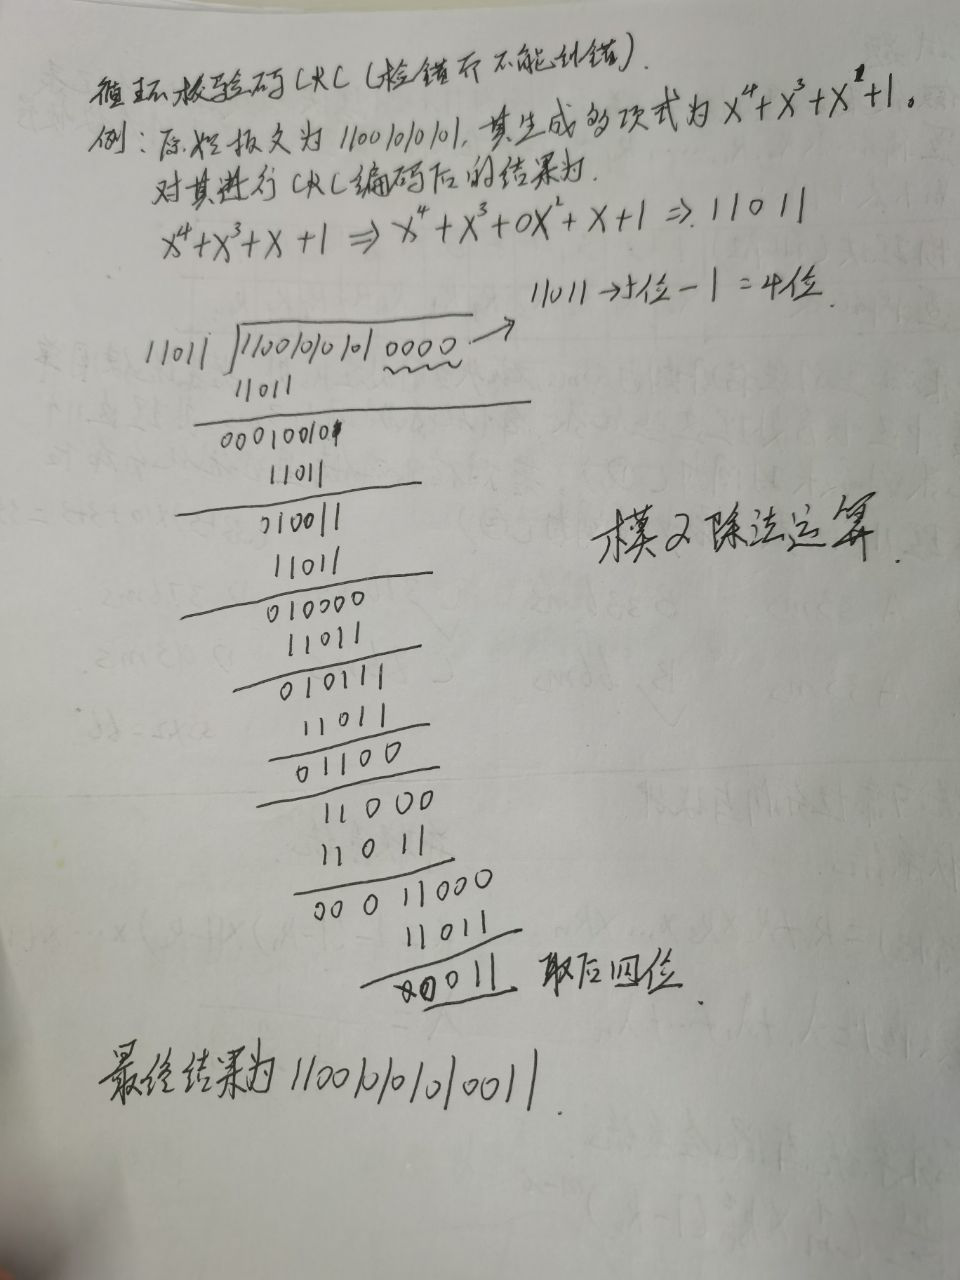 循环校验码CRC(检错而不能纠错).
例:原始报文为11001010101,其生成多项式为x⁴+x³+x+1。
对其进行CRC编码后的结果为.
x⁴+x³+x+1⇒x⁴+x³+0x²+x+1⇒11011
11011→5位-1=4位.
11011 11001010101 0000
11011
000100101
11011
010011
11011
010000
11011
010111
11011
01100
11000
11011
00011000
11011
00011 取后四位.
模2除法运算.
最终结果为110010101010011.